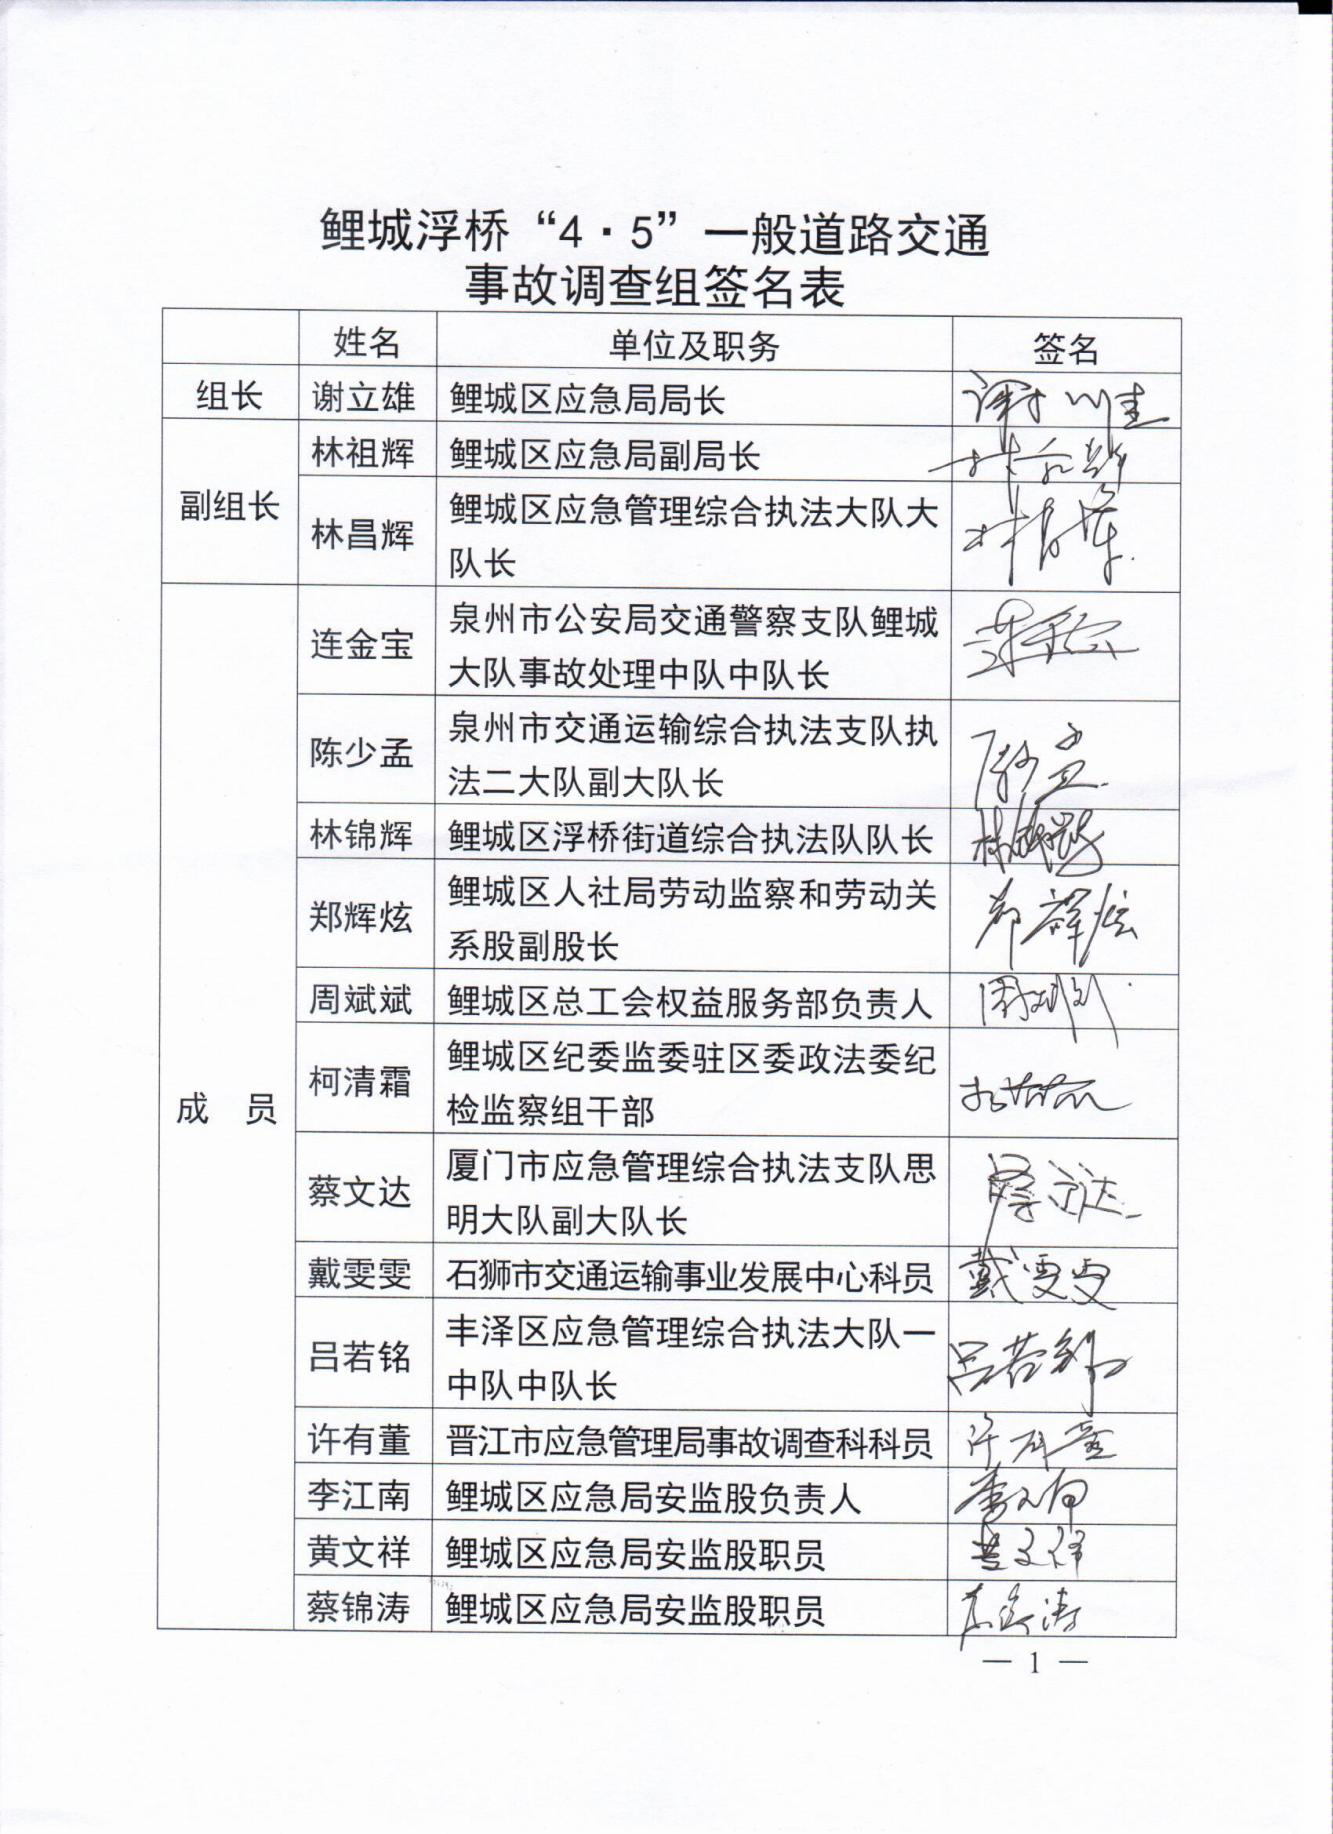 鲤城浮桥“4·5”一般道路交通
事故调查组签名表
姓名 单位及职务 签名
组长 谢立雄 鲤城区应急局局长
副组长
林祖辉 鲤城区应急局副局长
林昌辉 鲤城区应急管理综合执法大队大
队长
成 员
连金宝 泉州市公安局交通警察支队鲤城
大队事故处理中队中队长
陈少孟 泉州市交通运输综合执法支队执
法二大队副大队长
林锦辉 鲤城区浮桥街道综合执法队队长
郑辉炫 鲤城区人社局劳动监察和劳动关 郑辉炫
系股副股长
周斌斌 鲤城区总工会权益服务部负责人
柯清霜 鲤城区纪委监委驻区委政法委纪
检监察组干部
蔡文达 厦门市应急管理综合执法支队思
明大队副大队长
戴雯雯 石狮市交通运输事业发展中心科员 戴雯雯
吕若铭 丰泽区应急管理综合执法大队一 吕若铭
中队中队长
许有董 晋江市应急管理局事故调查科科员
李江南 鲤城区应急局安监股负责人 李江南
黄文祥 鲤城区应急局安监股职员 黄文祥
蔡锦涛 鲤城区应急局安监股职员
— 1 —